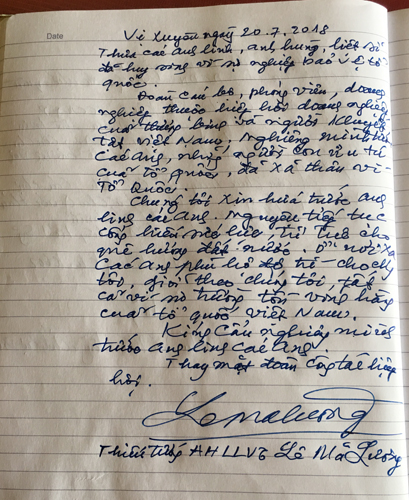 Date
Vị Xuyên ngày 20.7.2018
Thưa các anh linh, anh hùng, liệt sĩ
đã hy sinh vì sự nghiệp bảo vệ tổ
quốc.
Đoàn cán bộ, phóng viên, doanh
nghiệp thuộc hiệp hội doanh nghiệp
của thương binh và người khuyết
tật Việt Nam, nghiêng mình trước
các Anh, những người con ưu tú
của tổ quốc, đã xả thân vì
Tổ Quốc.
Chúng tôi xin hứa trước anh
linh các anh. Nguyện tiếp tục
cống hiến sức lực trí tuệ cho
quê hương đất nước. Ở nơi xa
các anh phù hộ độ trì cho chúng
tôi, dõi theo chúng tôi, tất
cả vì sự trường tồn vững bằng
của tổ quốc Việt Nam.
Kính cẩn nghiêng mình
trước anh linh các Anh.
Thay mặt đoàn công tác hiệp
hội.
Lemaluong
Thiếu tướng AH LLVT Lê Mã Lương